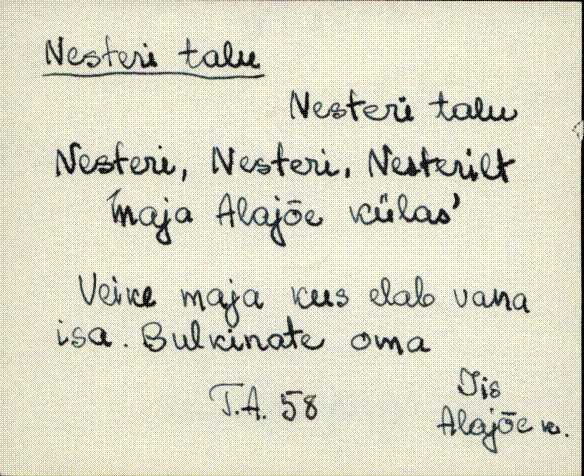 Nesteri talu
Nesteri talu
Nesteri, Nesteri, Nesterilt
maja Alajõe külas'
Veike maja kus elab vana
isa. Bulkinate oma
T.A. 58
Iis
Alajõe k.